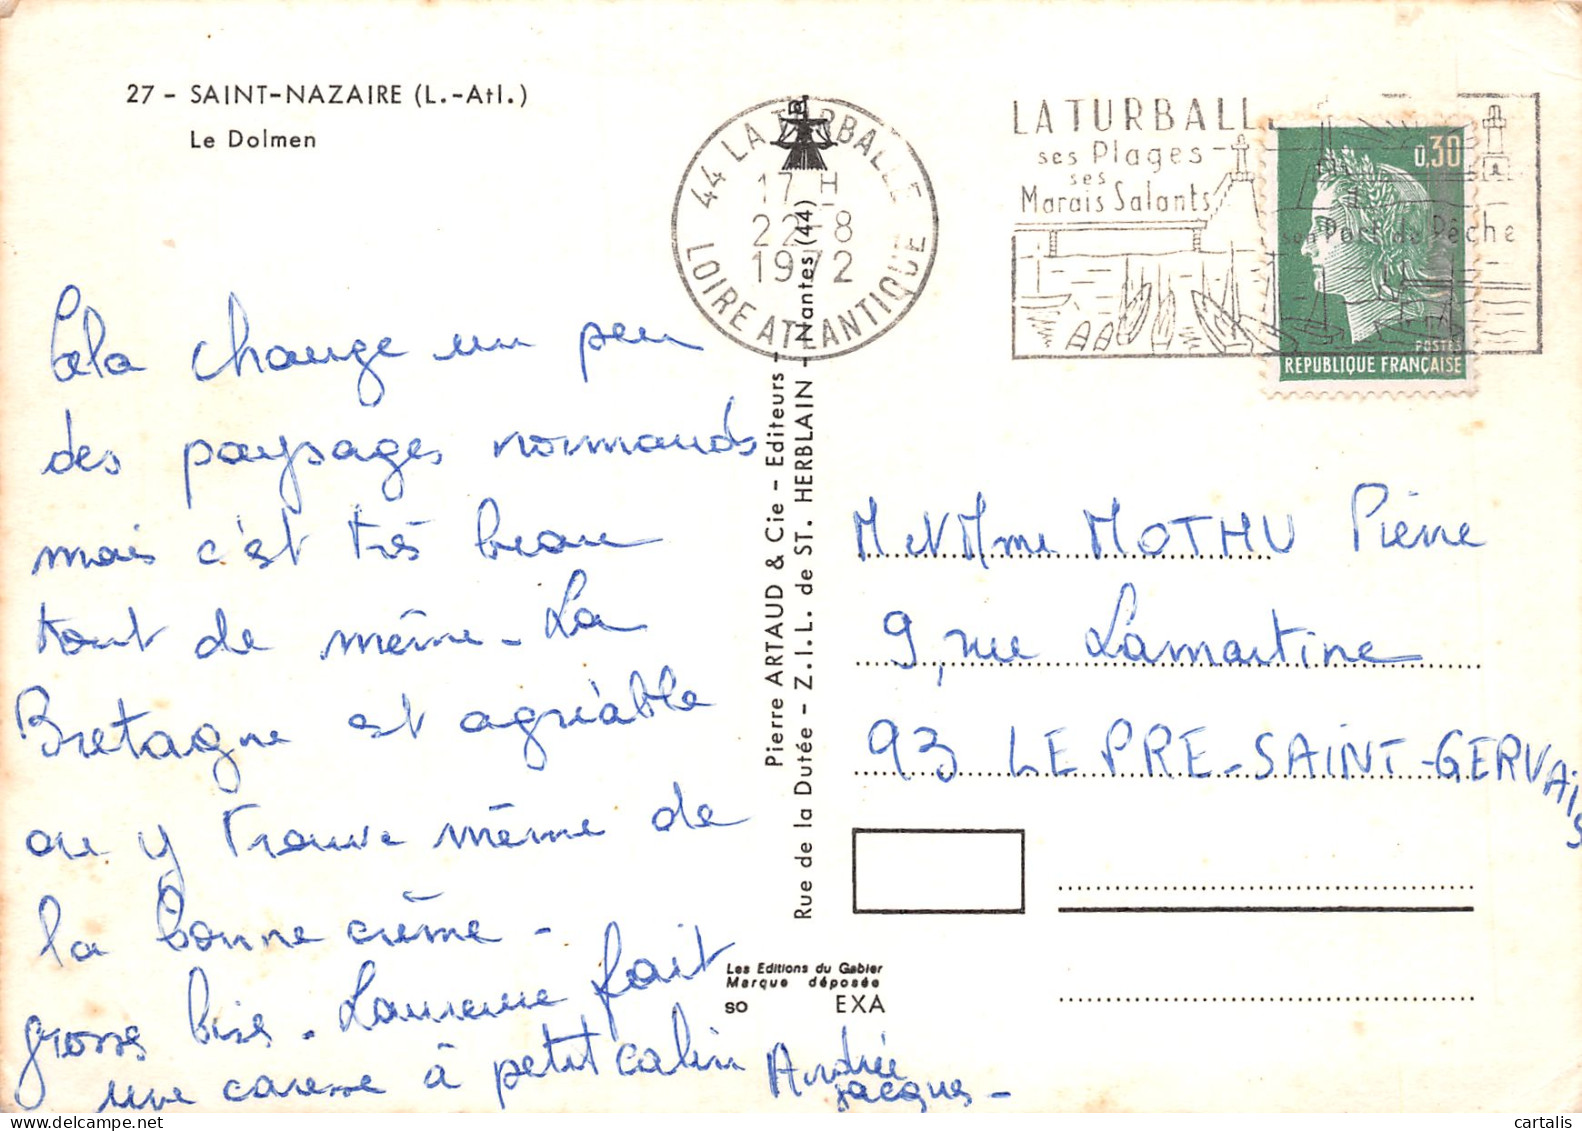 27 - SAINT-NAZAIRE (L.-Atl.)
Le Dolmen
Cela change un peu
des paysages normands
mais c'est très beau
tout de même - La
Bretagne est agréable
on y trouve même de
la bonne crème -
grosses bises - Laurence fait
une caresse à petit calin
Andrée
Jacques -
44 LA TURBALLE
17 H
22-8
1972
LOIRE ATLANTIQUE
LA TURBALL
ses Plages -
ses
Marais Salants
son Port de Pêche
0,30
POSTES
REPUBLIQUE FRANÇAISE
Pierre ARTAUD & Cie - Editeurs -
Rue de la Dutée - Z.I.L. de ST. HERBLAIN - Nantes (44)
M et Mme MOTHU Pierre
9, rue Lamartine
93 LE PRE-SAINT-GERVAIS
Les Editions du Gabier
Marque déposée
SO EXA
cartalis